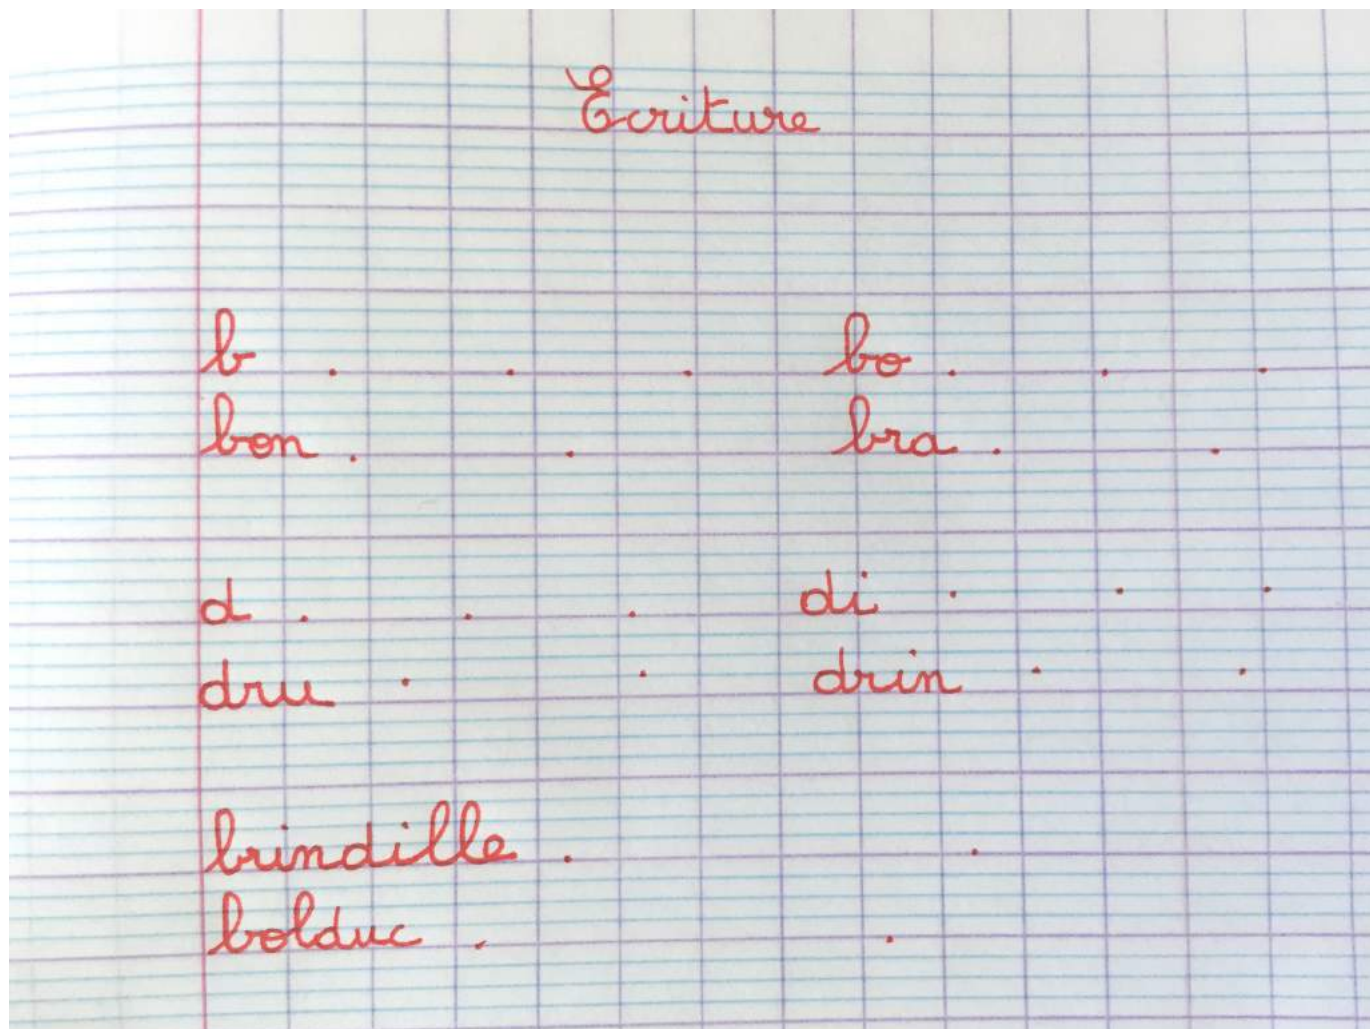 Ecriture
b . . . bo . . .
bon . . bra . .
d . . . di . . .
dru . . drin . .
brindille . .
bolduc . .